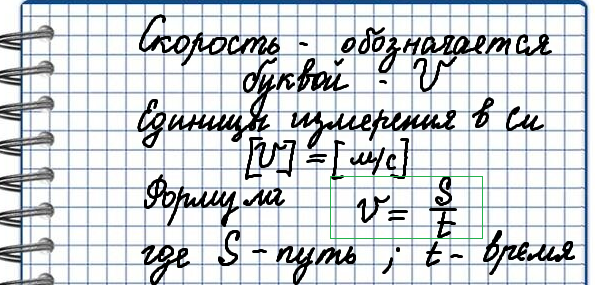 Скорость - обозначается
буквой - V
Единицы измерения в си
[V] = [м/с]
Формула V = S/t
где S - путь ; t - время